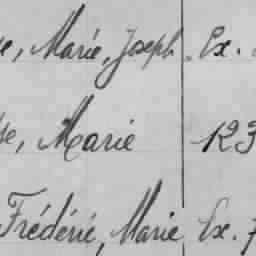 e, Marie, Joseph Ex.
se, Marie 123
Frédéric, Marie Ex. 7